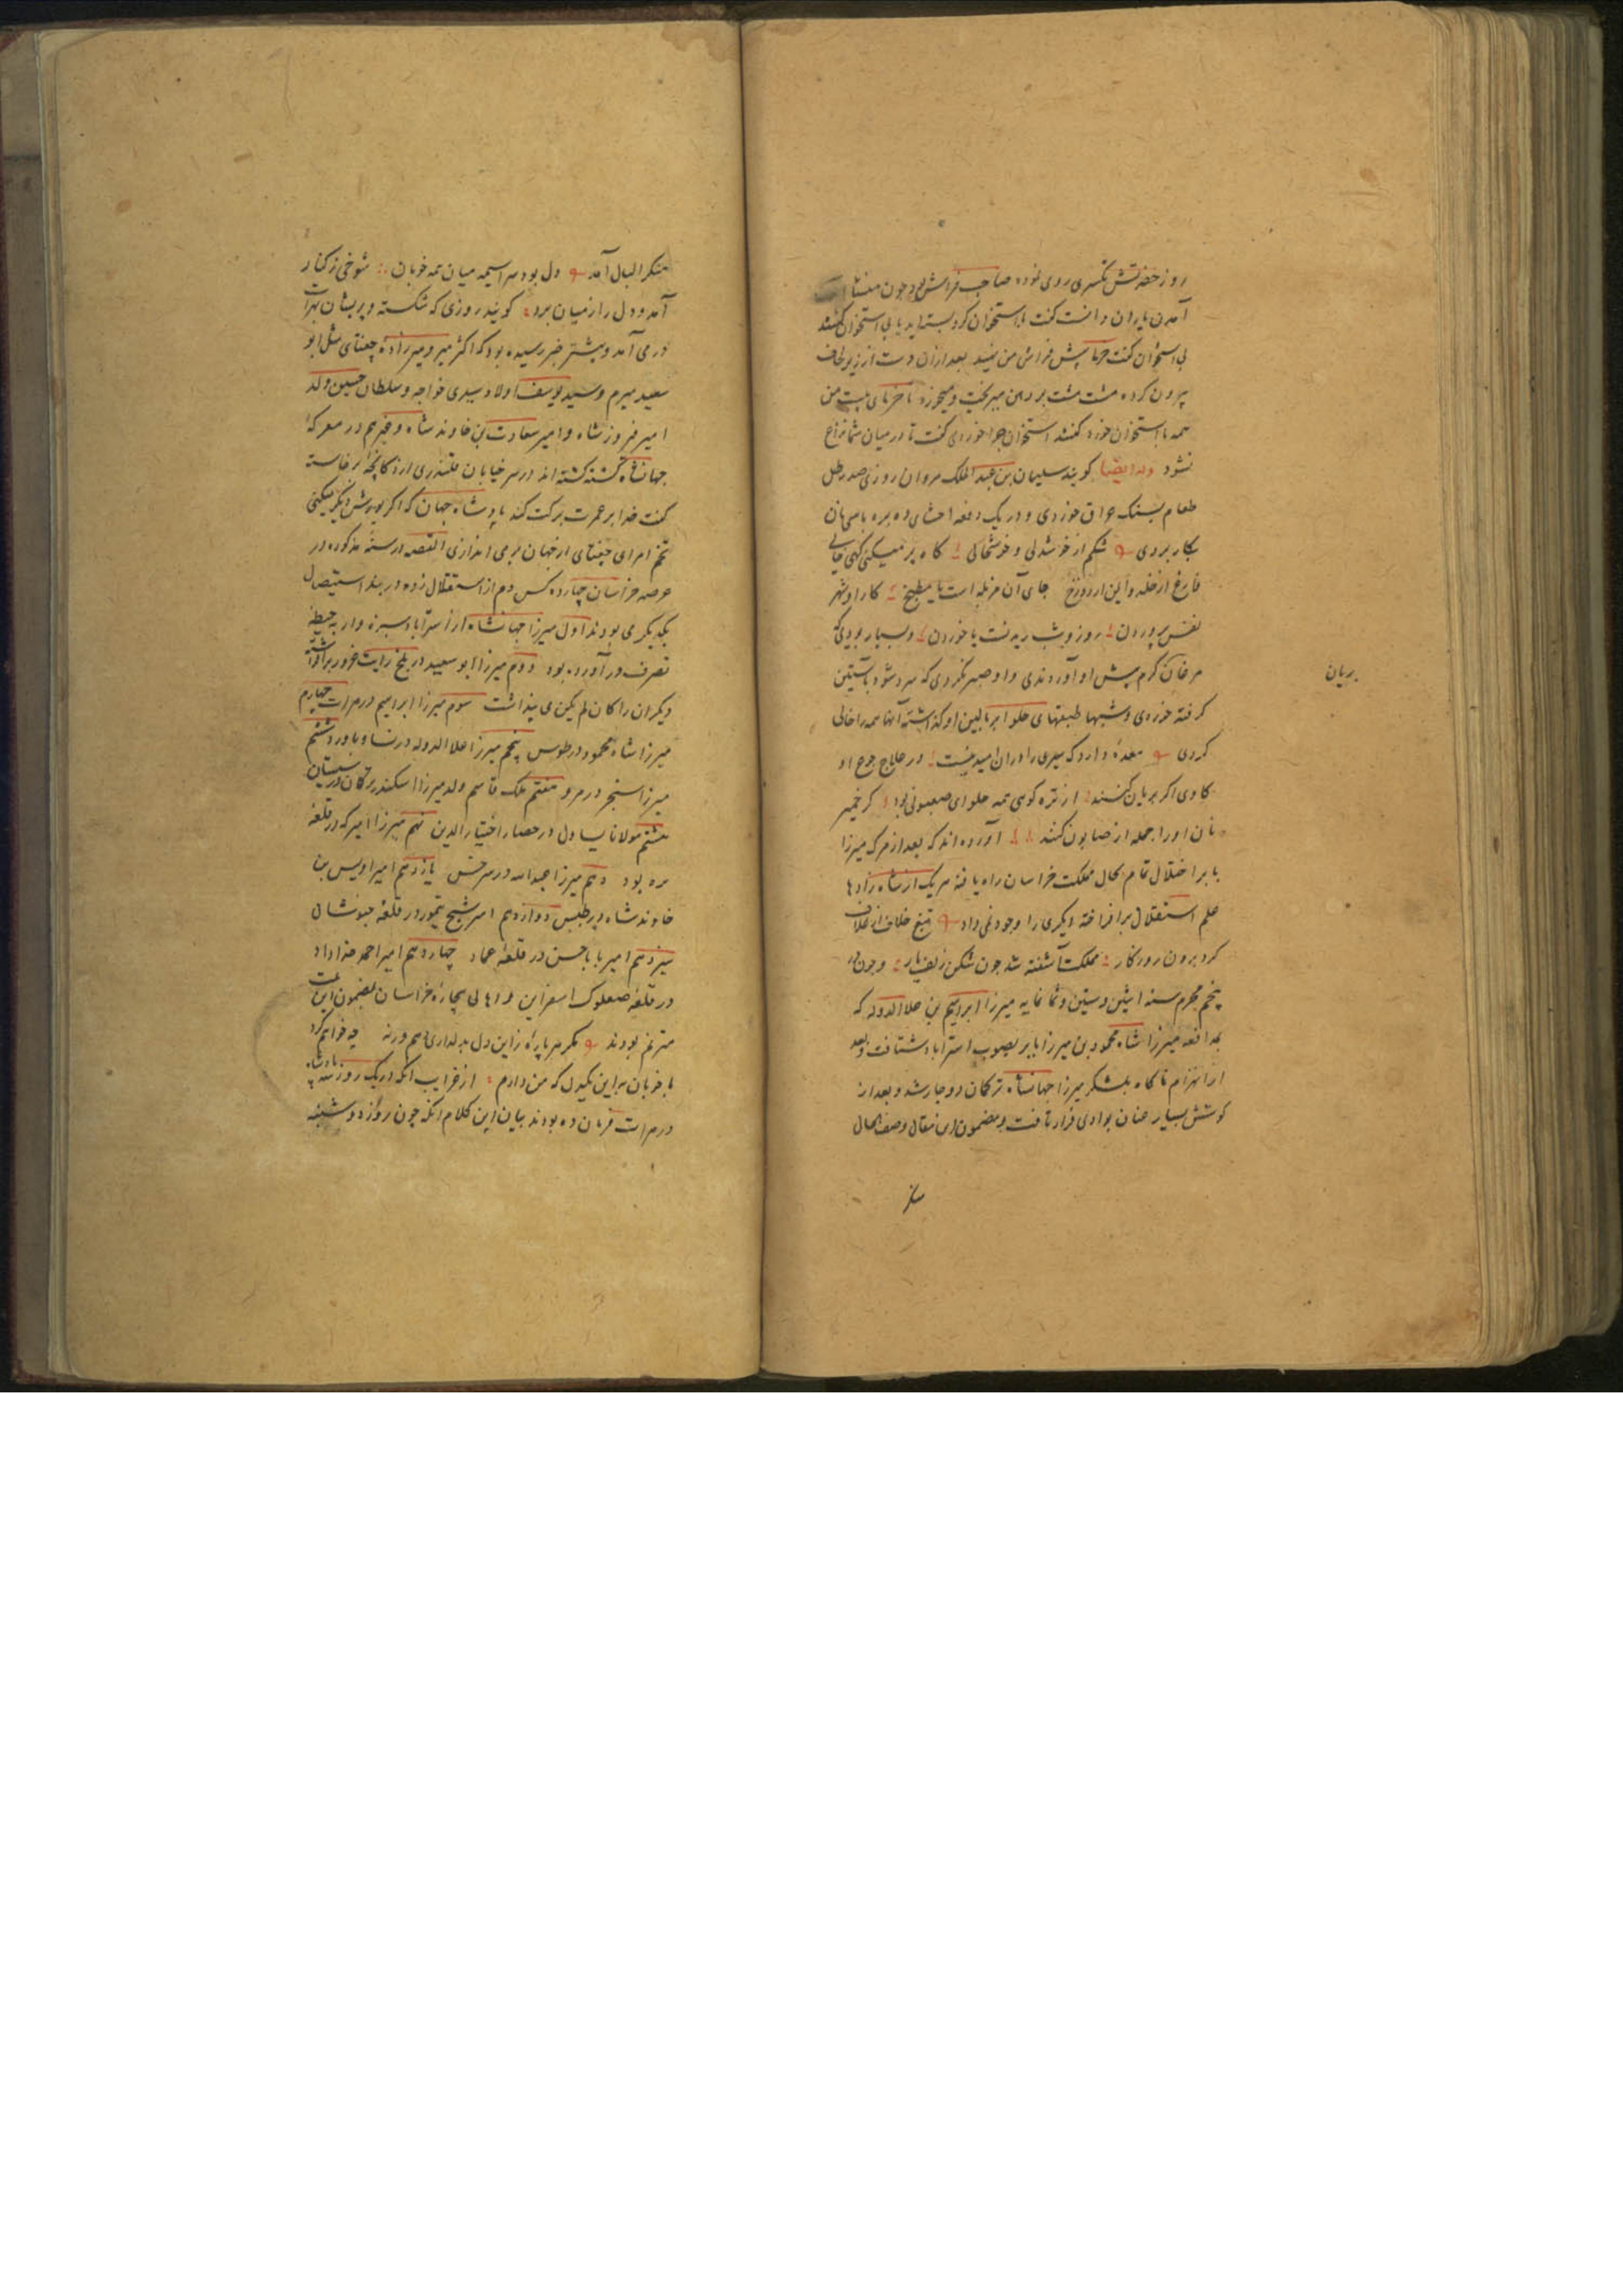 روز حضرتش کسری روی نموده صاحب فراش بود چون
آمدن یاران دانست گفت با استخوان کرد بسته اید یا بی استخوان گفتند
بی استخوان گفت خرما پیش فراش من نهید بعد ازان دست از زیر لحاف
بیرون کرده مشت مشت بر دهن میریخت و میخورد تا خرمای بیست من
همه با استخوان خورد گفتند استخوان چرا خوردی گفت تا در میان شما نزاع
نشود وله ایضا گویند سلیمان بن عبد الملک مروان روزی صد رطل
طعام بسنک عراق خوردی و در یک دفعه احشای ده بره با سی نان
بکار بردی شکم از خوشدلی و خوشحالی گاه پر میکنی گهی خالی
فارغ از خلد و ایمن از دوزخ جای آن مزبله است یا مطبخ کار او شهر
نفس پروردن روز و شب ریدنست یا خوردن و بسیار بودی که
مرغان گرم پیش او آوردندی و او صبر نکردی که سرد شود باستین
بریان
گرفته خوردی و شبها طبقهای حلوا بر بالین او گذاشته آنها همه را خالی
کردی معدهٔ دارد که سیری را در ان امید نیست در علاج جوع او
گاوی اگر بریان کنند از تره کوهی همه حلوای صعبونی بود گر خمیر
نان او را جمله از صابون کنند آورده اند که بعد از مرگ میرزا
بابر اختلال تمام بحال مملکت خراسان راه یافته هر یک از شاه زادها
علم استقلال برافراخته دیگری را وجود نمی داد تیغ خلاف از غلاف
کرد برون روزگار مملکت آشفته شد چون شکن زلف یار و چون در
پنجم محرم سنه اثنین و ستین و ثمانمایه میرزا ابراهیم بن علا الدوله که
بمدافعه میرزا شاه محمود بن میرزا بابر بصوب استراباد شتافت و بعد
از انهزام ناگاه بلشکر میرزا جهانشاه ترکمان دوچار شد و بعد از
کوشش بسیار عنان بوادی فرار تافت و مضمون این مقال وصف الحال
آمد دل بود سراسیمه میان همه خوبان شوخی ز کنار
آمد و دل را ز میان برد گویند روزی که شکسته و پریشان بهرات
در می آمد و پیشتر خبر رسیده بود که اکثر میر و میرزادهٔ چغتای مثل ابو
سعید میرم و سید یوسف اولاد سیدی خواجه و سلطان حسین ولد
امیر فیروز شاه و امیر سعادت بن خاوند شاه و غیرهم در معرکهٔ
جهانشاه کشته گشته اند در سر خیابان قلندری از دکانچه برخاسته
گفت خدا بر عمرت برکت کند پادشاه جهان که اگر یورش دیگر میکنی
تخم امرای چغتای از جهان بر می اندازی القصه در سنهٔ مذکوره در
عرصه خراسان چهارده کس دم از استقلال زده در بند استیصال
یکدیگر می بودند اول میرزا جهانشاه از استراباد سبزه وار به حیطهٔ
تصرف در آورده بود دوم میرزا ابو سعید در بلخ رایت غرور برافراشته
دیگران را کان لم یکن می پنداشت سوم میرزا ابراهیم در هرات چهارم
میرزا شاه محمود در طوس پنجم میرزا علا الدوله در نسا و باورد ششم
میرزا سنجر در مرو هفتم ملک قاسم ولد میرزا اسکندر ترکمان در سیستان
هشتم مولانا یساول در حصار اختیار الدین نهم میرزا امیرک در قلعه
سره بود دهم میرزا عبد الله در سرخس یازدهم امیر اویس بن
خاوند شاه در طبس دوازدهم امیر شیخ تیمور در قلعهٔ خبوشان
سیزدهم امیر بابا حسن در قلعه عماد چهاردهم امیر احمد خداداد
در قلعه صعلوک اسفراین و اهالی بیچارهٔ خراسان بمضمون این بیت
مترنم بودند مگر هر پاره زاین دل بدلداری دهم ورنه چه خواهم کرد
با خوبان به این یکدل که من دارم از غرایب آنکه در یک روز سه پادشاه
در هرات فرمان ده بودند بیان این کلام آنکه چون روز دو شنبه